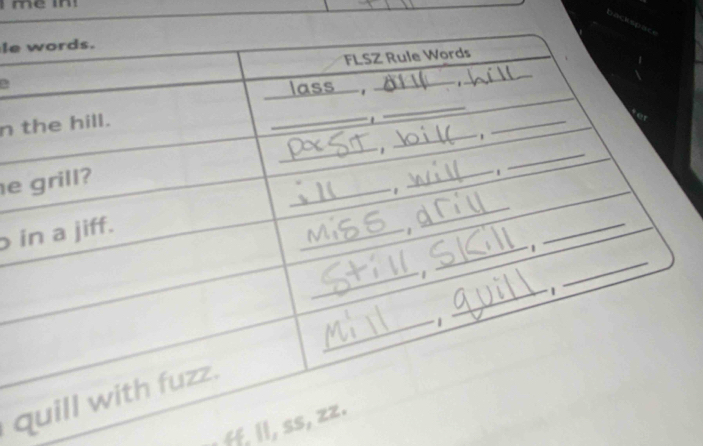 me in!
le words.
FLSZ Rule Words
e
lass, , hill
n the hill.
bill,
e grill?
ill, will,
in a jiff.
Miss, drill
Still, Skill,
Mill, quill,
quill with fuzz.
ff, ll, ss, zz.
backspace